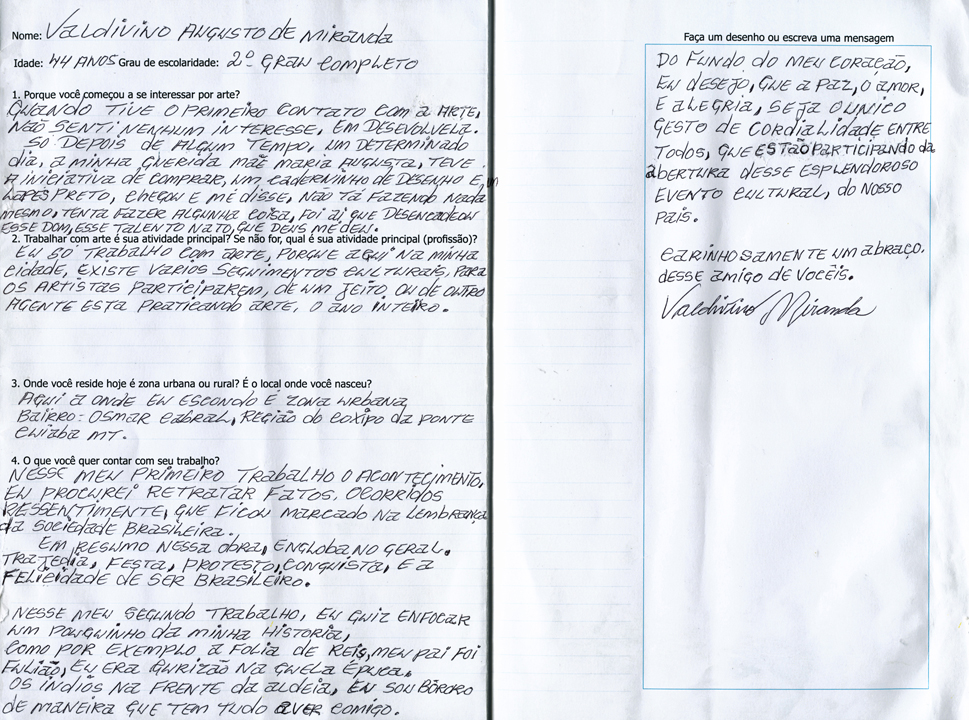 Nome: Valdivino Augusto de Miranda
Idade: 44 anos Grau de escolaridade: 2º Grau completo
1. Porque você começou a se interessar por arte?
Quando tive o primeiro contato com a arte,
não senti nenhum interesse, em desevolvela.
Só depois de algum tempo, um determinado
dia, a minha querida mãe Maria Augusta, teve
a iniciativa de comprar, um caderninho de desenho e um
lapes preto, chegou e me disse, não tá fazendo nada
mesmo, tenta fazer alguma coisa, foi ai que desencadeou
esse dom, esse talento nato, que Deus me deu.
2. Trabalhar com arte é sua atividade principal? Se não for, qual é sua atividade principal (profissão)?
Eu só trabalho com arte, porque aqui na minha
cidade, existe varios seguimentos culturais, para
os artistas participarem, de um jeito, ou de outro
agente esta praticando arte, o ano inteiro.
3. Onde você reside hoje é zona urbana ou rural? É o local onde você nasceu?
Aqui a onde eu escondo é zona urbana
Bairro: Osmar Cabral, região do Coxipo da Ponte
Cuiaba MT.
4. O que você quer contar com seu trabalho?
Nesse meu primeiro trabalho o acontecimento,
eu procurei retratar fatos. Ocorridos
ressentimente, que ficou marcado na lembrança
da sociedade brasileira.
Em resumo nessa obra, engloba no geral.
Tragedia, festa, protesto, conquista, e a
felicidade de ser brasileiro.
Nesse meu segundo trabalho, eu quiz enfocar
um pouquinho da minha historia,
como por exemplo a folia de reis, meu pai foi
fulião, eu era gurizão na quela época.
Os indios na frente da aldeia, eu sou bororo
de maneira que tem tudo aver comigo.
Faça um desenho ou escreva uma mensagem
Do fundo do meu coração,
eu desejo, que a paz, o amor,
e alegria, seja o unico
gesto de cordialidade entre
todos, que estão participando da
abertura desse esplendoroso
evento cultural, do nosso
país.
Carinhosamente um abraço.
desse amigo de vocêis.
Valdivino Miranda